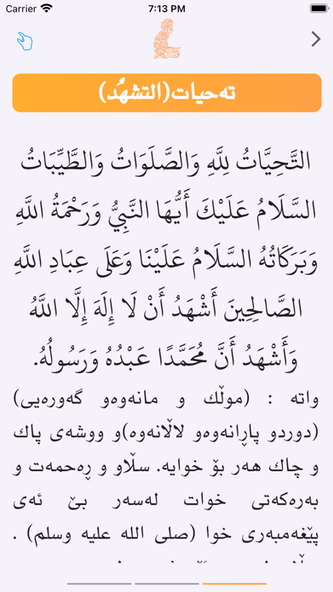 Carrier 7:13 PM
تەحیات(التشهُد)
التَّحِيَّاتُ لِلَّهِ وَالصَّلَوَاتُ وَالطَّيِّبَاتُ
السَّلَامُ عَلَيْكَ أَيُّهَا النَّبِيُّ وَرَحْمَةُ اللَّهِ
وَبَرَكَاتُهُ السَّلَامُ عَلَيْنَا وَعَلَى عِبَادِ اللَّهِ
الصَّالِحِينَ أَشْهَدُ أَنْ لَا إِلَهَ إِلَّا اللَّهُ
وَأَشْهَدُ أَنَّ مُحَمَّدًا عَبْدُهُ وَرَسُولُهُ.
واتە : (موڵك و مانەوەو گەورەیی)
(دوردو پاڕانەوەو لاڵانەوە)و ووشەی پاك
و چاك هەر بۆ خوایە. سڵاو و ڕەحمەت و
بەرەکەتی خوات لەسەر بێ ئەی
پێغەمبەری خوا (صلى الله عليه وسلم) .